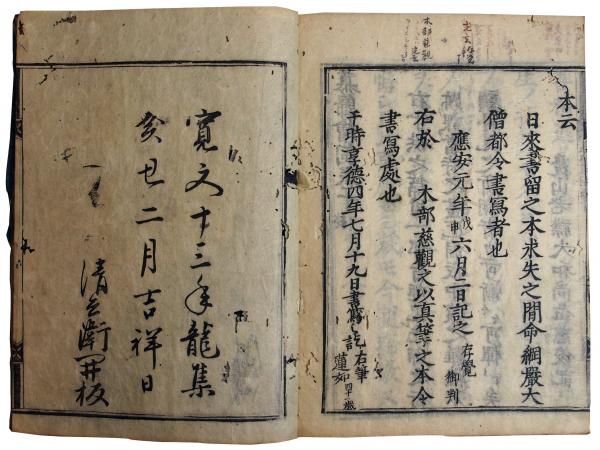 本云
日來書留之本求失之間命綱嚴大
僧都令書寫者也
應安元年戊申六月二日記之 存覺御判
右於木部慈觀之以真筆之本令
書寫處也
于時享德四年七月十九日書寫訖 右筆蓮如四十歲
寛文十三年龍集
癸丑二月吉祥日
清兵衛開板